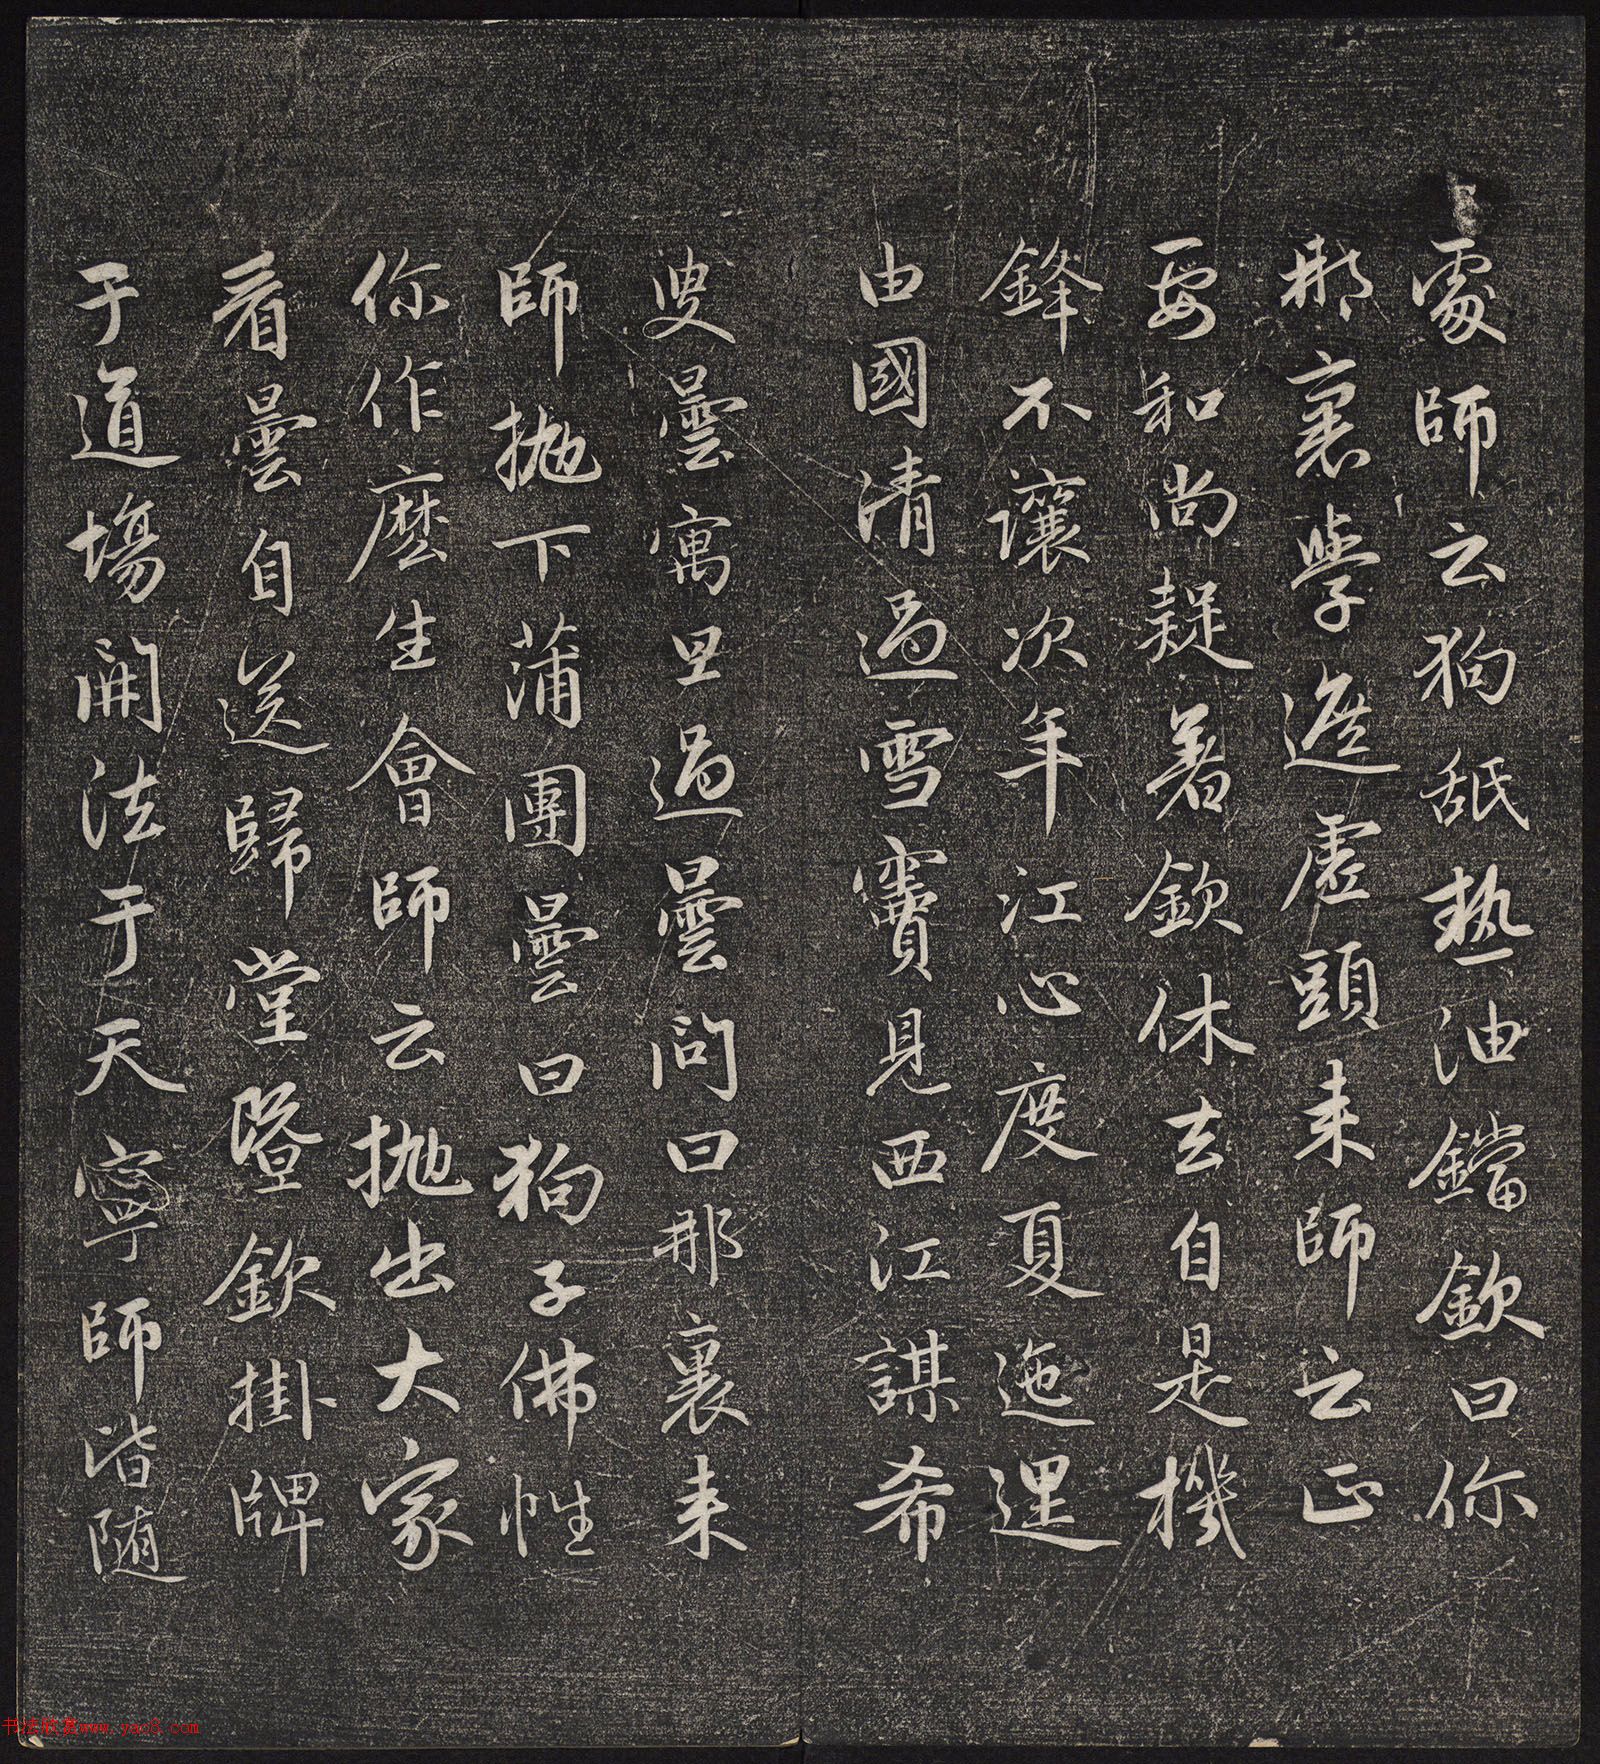 處師云狗舐熱油鐺欽曰你
那裏學遮虛頭來師云正
要和尚疑著欽休去自是機
鋒不讓次年江心度夏迤逦
由國清過雪竇見西江謀希
叟曇寓旦過曇問曰那裏來
師拋下蒲團曇曰狗子佛性
你作麼生會師云拋出大家
看曇自送歸堂暨欽掛牌
于道場開法于天寧師皆随
书法欣赏www.yac8.com